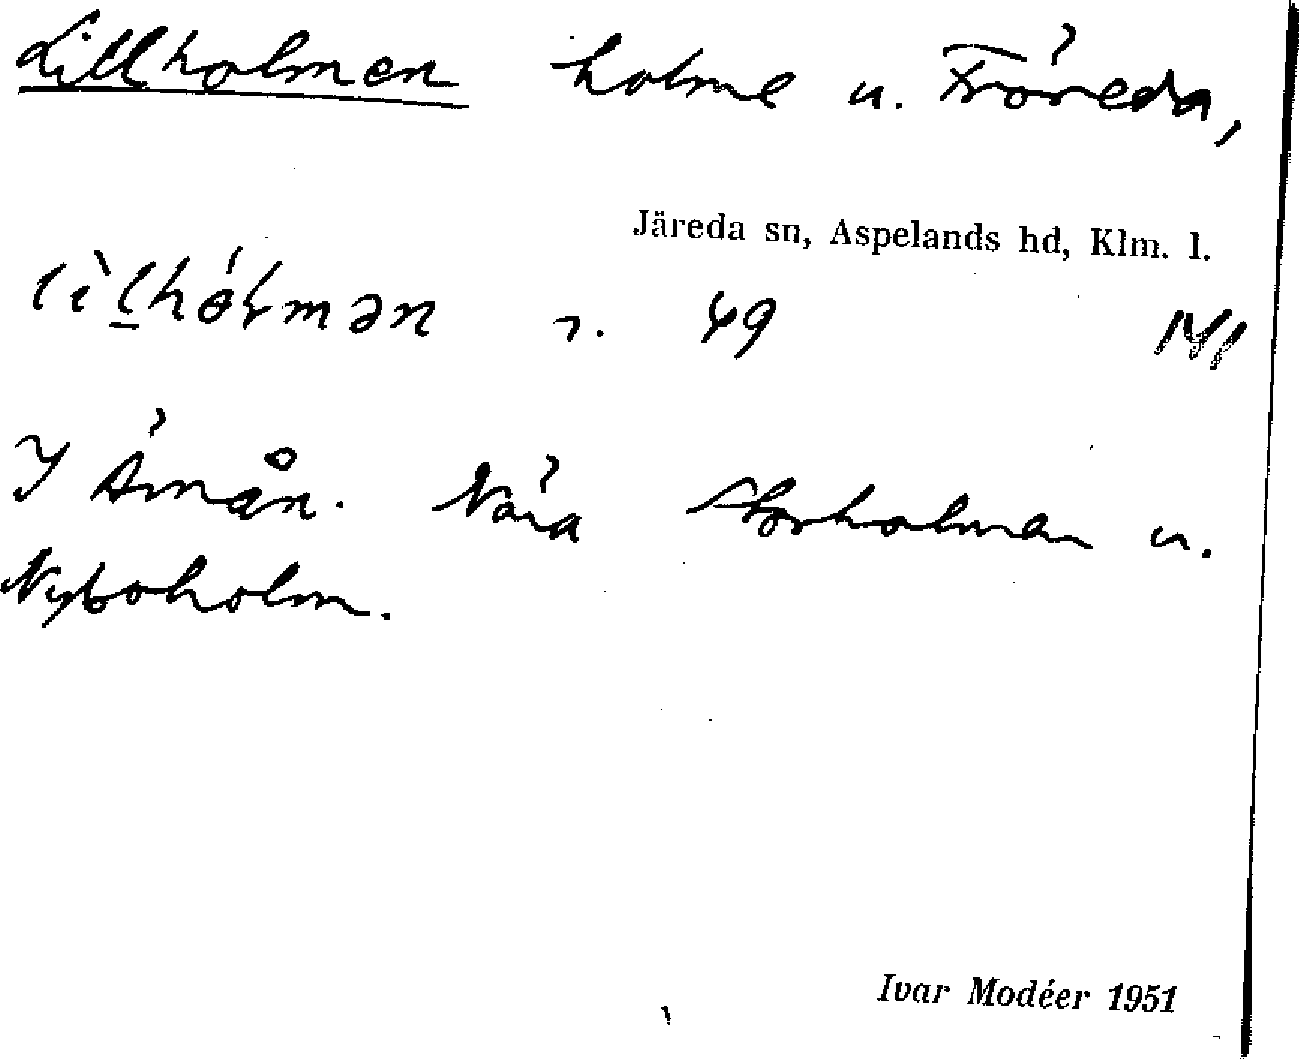 Lillholmen holme u. Fröreda,
Järeda sn, Aspelands hd, Klm. l.
lìlhólmən r. 49 141
I Åmån. Nära Storholmen u.
Nyboholm.
Ivar Modéer 1951